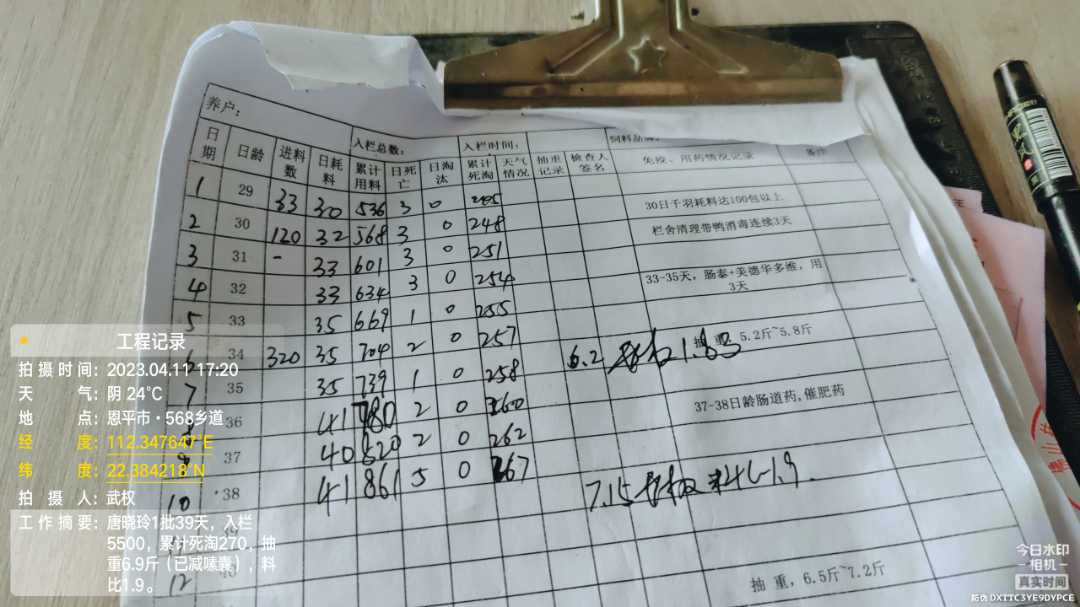 养户：
入栏总数： 入栏时间： 饲料品牌：
日期 日龄 进料数 日耗料 累计用料 日死亡 日淘汰 累计死淘 天气情况 抽重记录 检查人签名 免疫、用药情况记录 备注
1 29 33 30 536 3 0 245 30日千羽耗料达100包以上
2 30 120 32 568 3 0 248 栏舍清理带鸭消毒连续3天
3 31 - 33 601 3 0 251
4 32 33 634 3 0 254 33-35天，肠泰+美德华多维，用3天
5 33 35 669 1 0 255
6 34 320 35 704 2 0 257 抽 重，5.2斤~5.8斤
6.2 1.83
7 35 35 739 1 0 258
8 36 41 780 2 0 260 37-38日龄肠道药，催肥药
9 37 40 820 2 0 262
10 38 41 861 5 0 267
7.15 料比1.9.
11
12 40 抽 重，6.5斤~7.2斤
工程记录
拍摄时间：2023.04.11 17:20
天 气：阴 24℃
地 点：恩平市·568乡道
经 度：112.347647°E
纬 度：22.384218°N
拍 摄 人：武权
工作摘要：唐晓玲1批39天，入栏
5500，累计死淘270，抽
重6.9斤（已减嗉囊），料
比1.9。
今日水印
相机
真实时间
防伪 DXTTC3YE9DYPCE